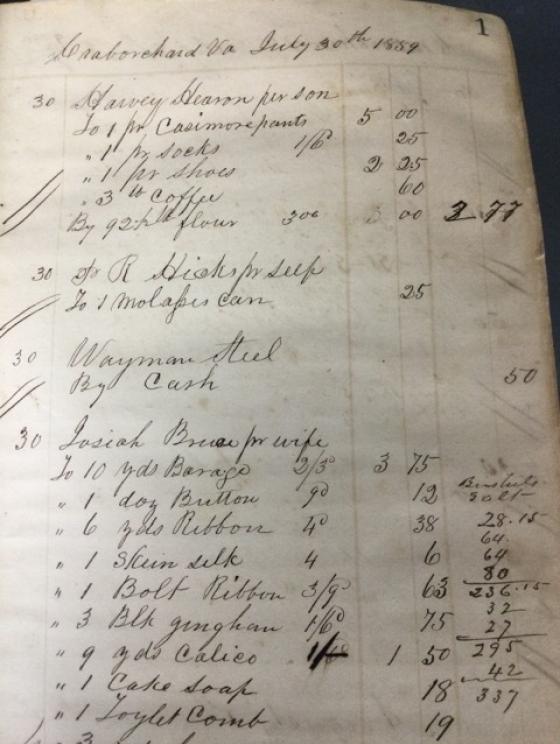 1
Craborchard Va July 30th 1859
30 Harvey Hearon per son
To 1 pr Casimore pants 5 00
" 1 pr socks 1/6 25
" 1 pr shoes 2 25
" 3 lb Coffee 60
By 92 lb flour 300 3 00 2 77
30 R Hicks pr self
To 1 molasses can 25
30 Wayman Steel
By Cash 50
30 Josiah Bruce pr wife
To 10 yds Barage 2/3d 3 75
" 1 doz Button 9d 12
" 6 yds Ribbon 4d 38
" 1 Skein silk 4 6
" 1 Bolt Ribbon 3/9d 63
" 3 Blk gingham 1/6d 75
" 9 yds Calico 1 50
" 1 Cake soap 18
" 1 Toylet Comb 19
" 3
Bushels
Salt
28.15
64
64
80
236.15
32
27
295
42
337